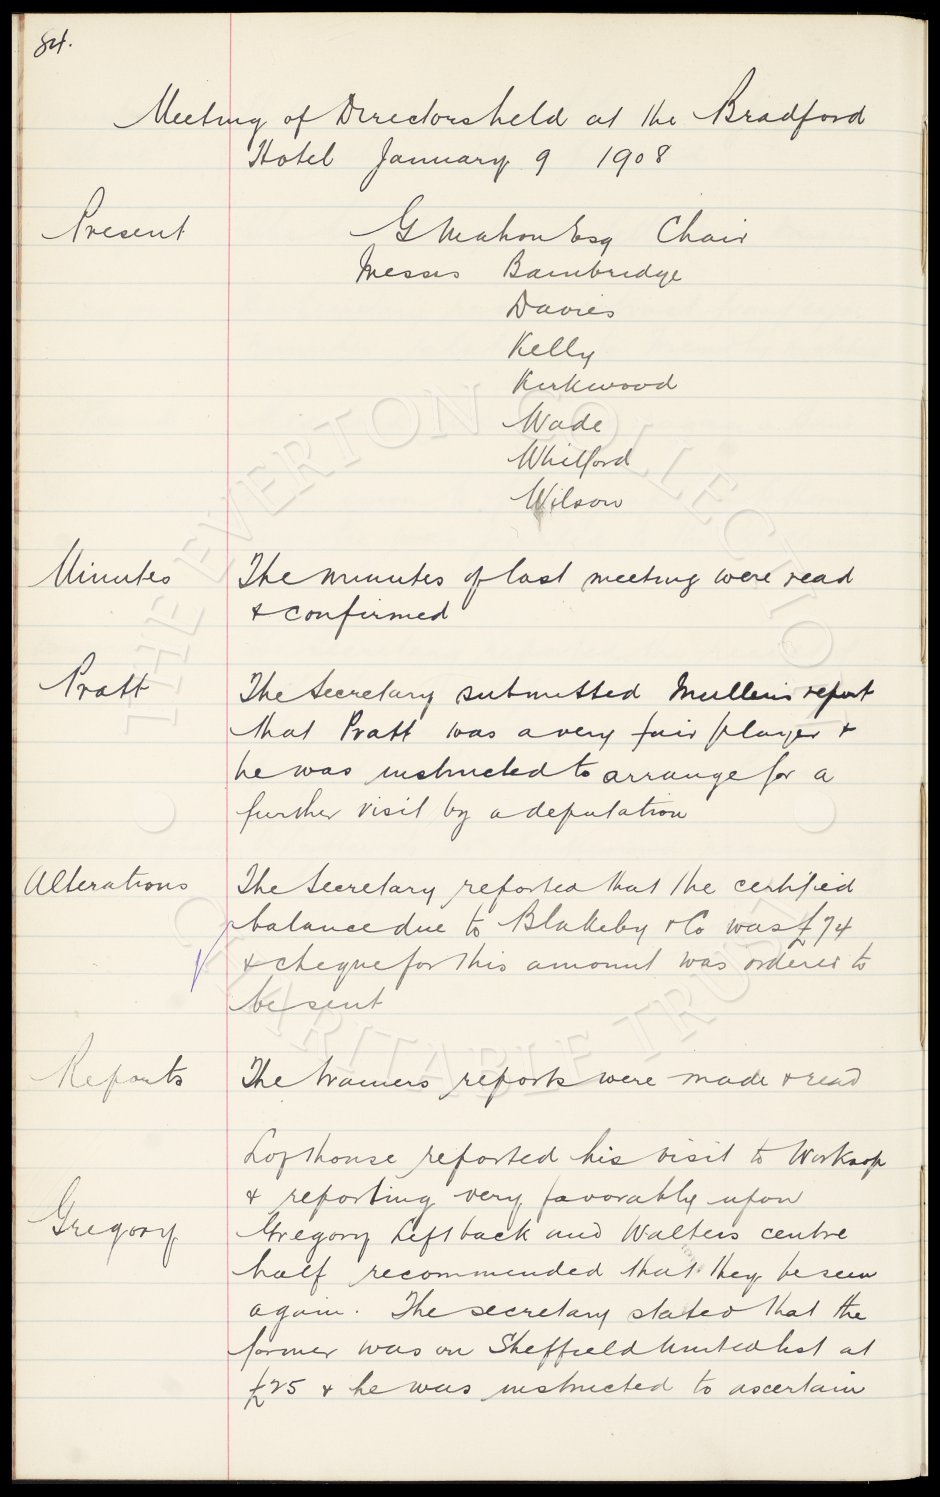 84.
Meeting of Directors held at the Bradford
Hotel January 9 1908
Present G Mahon Esq Chair
Messrs Bainbridge
Davies
Kelly
Kirkwood
Wade
Whitford
Wilson
Minutes The minutes of last meeting were read
& confirmed
Pratt The Secretary submitted Mullens report
that Pratt was a very fair player &
he was instructed to arrange for a
further visit by a deputation
Alterations The Secretary reported that the certified
balance due to Blakeby & Co was £74
& cheque for this amount was ordered to
be sent
Reports The trainers reports were made & read
Lofthouse reported his visit to Worksop
& reporting very favorably upon
Gregory Gregory Left back and Walters centre
half recommended that they be seen
again. The secretary stated that the
former was on Sheffield United list at
£25 & he was instructed to ascertain
THE EVERTON COLLECTION
CHARITABLE TRUST